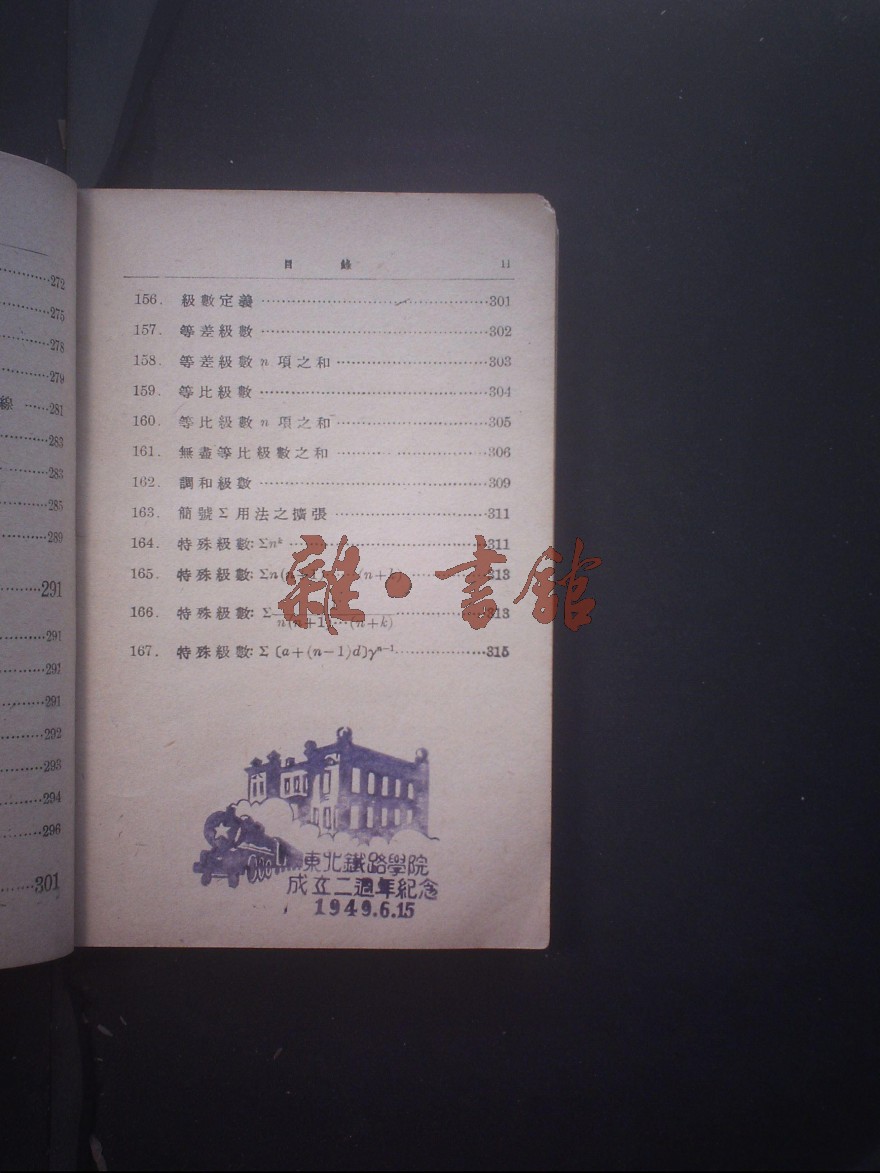 272
275
278
279
線 ……281
283
283
285
289
291
291
291
291
292
293
294
296
301
目 錄 11
156. 級數定義 ……301
157. 等差級數 ……302
158. 等差級數 n 項之和 ……303
159. 等比級數 ……304
160. 等比級數 n 項之和 ……305
161. 無盡等比級數之和 ……306
162. 調和級數 ……309
163. 簡號 Σ 用法之擴張 ……311
164. 特殊級數: Σn^k ……311
165. 特殊級數: Σn(n+1)……(n+k) ……313
166. 特殊級數: Σ 1/n(n+1)…(n+k) ……313
167. 特殊級數: Σ〔a+(n−1)d〕γ^n−1 ……315
雜·書館
東北鐵路學院
成立二週年紀念
1949.6.15